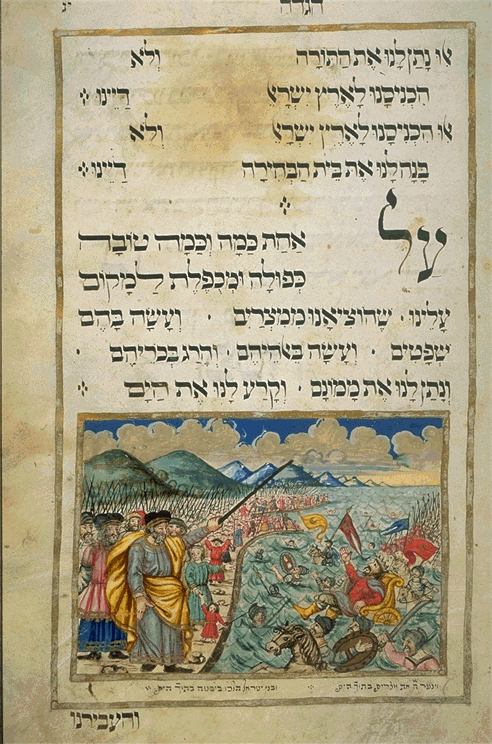 הגדה יג
אִלּוּ נָתַן לָנוּ אֶת הַתּוֹרָה וְלֹא
הִכְנִיסָנוּ לְאֶרֶץ יִשְׂרָאֵל דַּיֵּינוּ
אִלּוּ הִכְנִיסָנוּ לְאֶרֶץ יִשְׂרָאֵל וְלֹא
בָּנָה לָנוּ אֶת בֵּית הַבְּחִירָה דַּיֵּינוּ
עַל אַחַת כַּמָּה וְכַמָּה טוֹבָה
כְּפוּלָה וּמְכֻפֶּלֶת לַמָּקוֹם
עָלֵינוּ · שֶׁהוֹצִיאָנוּ מִמִּצְרַיִם · וְעָשָׂה בָהֶם
שְׁפָטִים · וְעָשָׂה בֵּאלֹהֵיהֶם · וְהָרַג בְּכֹרֵיהֶם ·
וְנָתַן לָנוּ אֶת מָמוֹנָם · וְקָרַע לָנוּ אֶת הַיָּם
וינער ה' את מצרים בתוך הים
ובני ישראל הלכו ביבשה בתוך הים
והעבירנו